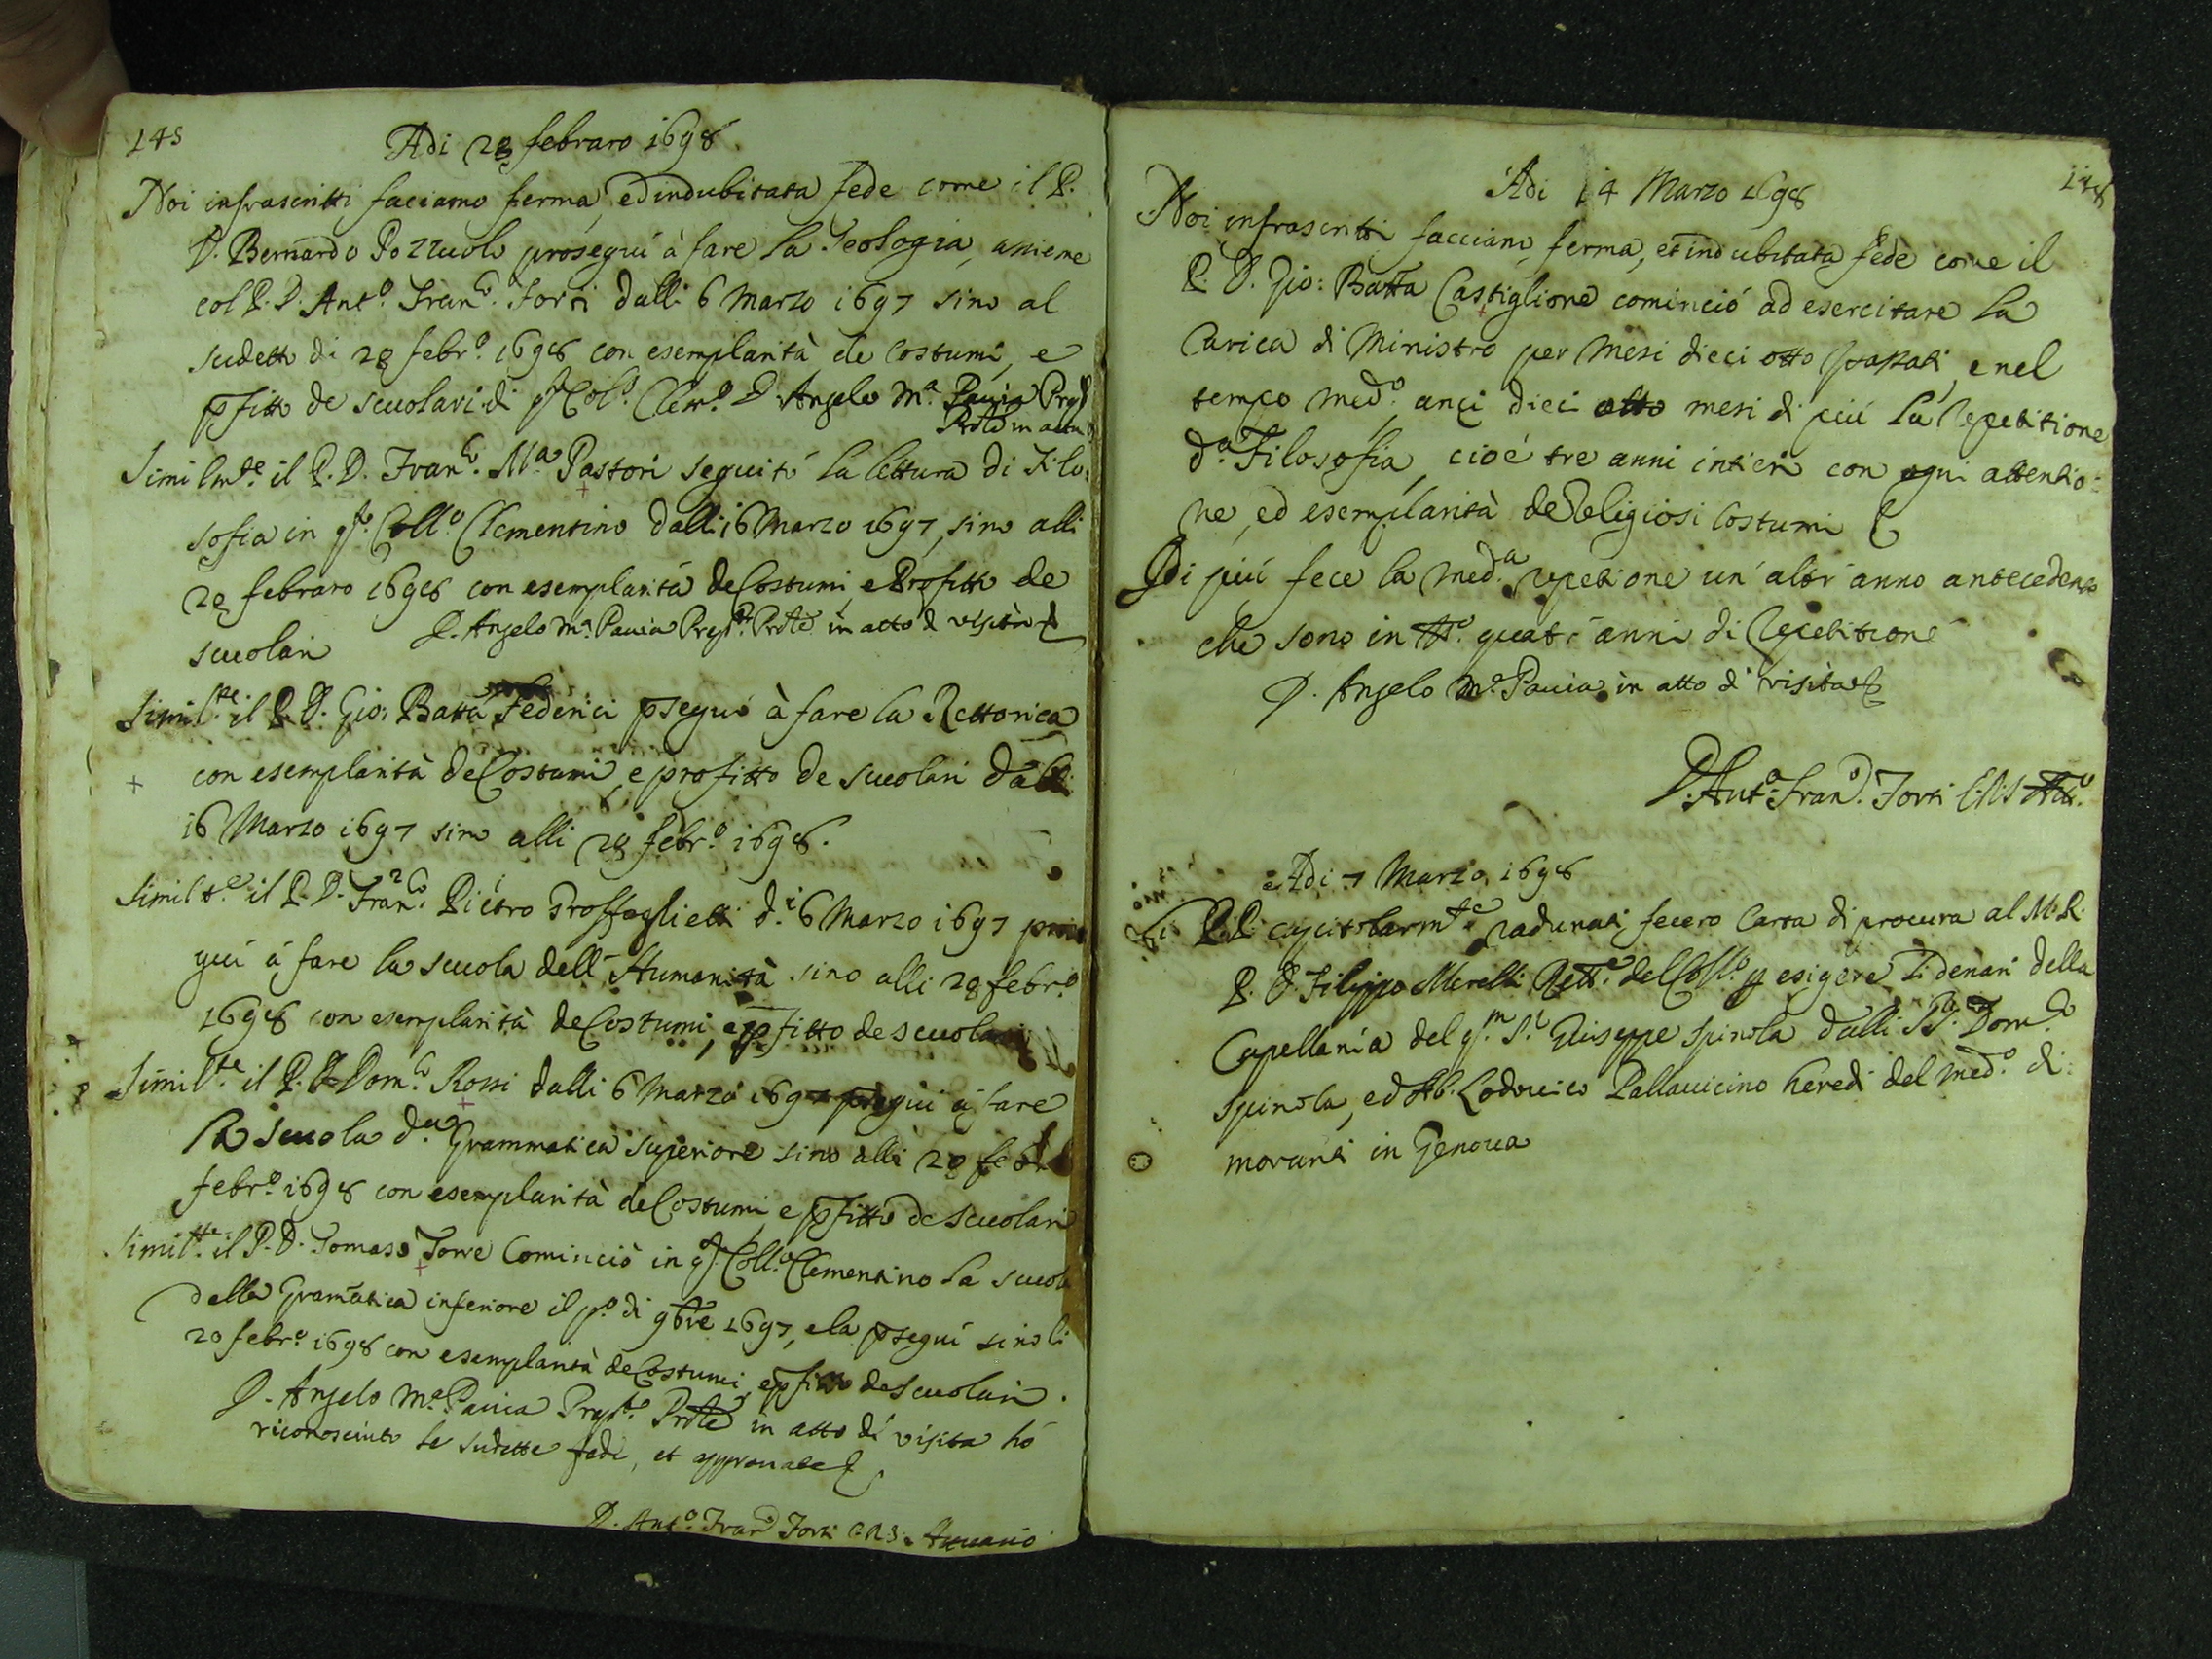 145
Adi 28 febraro 1698.
Noi infrascritti faciamo ferma, ed indubitata fede come il P.
D. Bernardo Pozzuoli proseguì à fare la Teologia, assieme
col P. D. Ant.º Fran.co Forti dalli 6 Marzo 1697 sino al
sudetto di 28 febr.º 1698 con esemplarità de Costumi, e
pfitto de scuolari di q.to Col.º Clem.º D. Angelo M.a Pavia Prep.to
Prôle in atto
Similm.te il P. D. Fran.co M.a Pastori seguitò la lettura di Filo:
sofia in q.to Coll.º Clementino dalli 16 Marzo 1697, sino alli
28 febraro 1698 con esemplarità de Costumi e Profitto de
scuolari D. Angelo M.a Pavia Prep.to Prôle in atto di visita
Simil.te il P. D. Gio: Batta Federici pseguì à fare la Rettorica
+ con esemplarità de Costumi, e profitto de scuolari dalli
16 Marzo 1697 sino alli 28 febr.º 1698.
Simil.te il P. D. Fran.co Pietro Grossoglietti d.i 6 Marzo 1697 prose
guì à fare la scuola dell'Humanità sino alli 28 febr.º
1698 con esemplarità de Costumi, e pfitto de scuolari
Simil.te il P. D. Dom.co Rossi dalli 6 Marzo 1697 pseguì à fare
la scuola d.a Grammatica superiore sino alli 28
febr.º 1698 con esemplarità de Costumi, e pfitto de scuolari
Simil.te il P. D. Tomaso Torre Cominciò in q.to Coll.º Clementino la scuola
della Gramatica inferiore il p.º di 9bre 1697, e la pseguì sino li
20 febr.º 1698 con esemplarità de Costumi, e pfitto de scuolari.
D. Angelo M.a Pavia Prep.to Prôle in atto di visita hò
riconosciuto le sudette fedi, et approuate
D. Ant.º Fran.co Forti C.R.S. Attuario
Adi 14 Marzo 1698
Noi infrascritti facciam ferma, et indubitata fede come il
P. D. Gio: Batta Castiglione cominciò ad esercitare la
Carica di Ministro per Mesi dieci otto passati, e nel
tempo med.º, anzi dieci otto mesi di più la Repetitione
d.a Filosofia, cioè tre anni intieri con ogni attentio:
ne, ed esemplarità de Religiosi Costumi
Di più fece la med.a repetitione un altr'anno antecedente
che sono in tt.º quatr'anni di Repetitione
D. Angelo M.a Pavia in atto di visita
D. Ant.º Fran.co Forti C.R.S. Att.º
Adi 7 Marzo 1698
Li PP. capitolarm.te radunati fecero Carta di procura al M. R.
P. D. Filippo Merelli Rett.e del Coll.º p esigere li denari della
Capellania del q.m S.r Giuseppe Spinola dalli SS.ri Dom.co
Spinola, ed Ab. Lodovico Pallavicino heredi del med.º di:
moranti in Genova